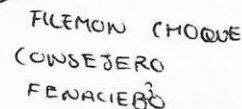 FILEMON CHOQUE
CONSEJERO
FENACIEBO